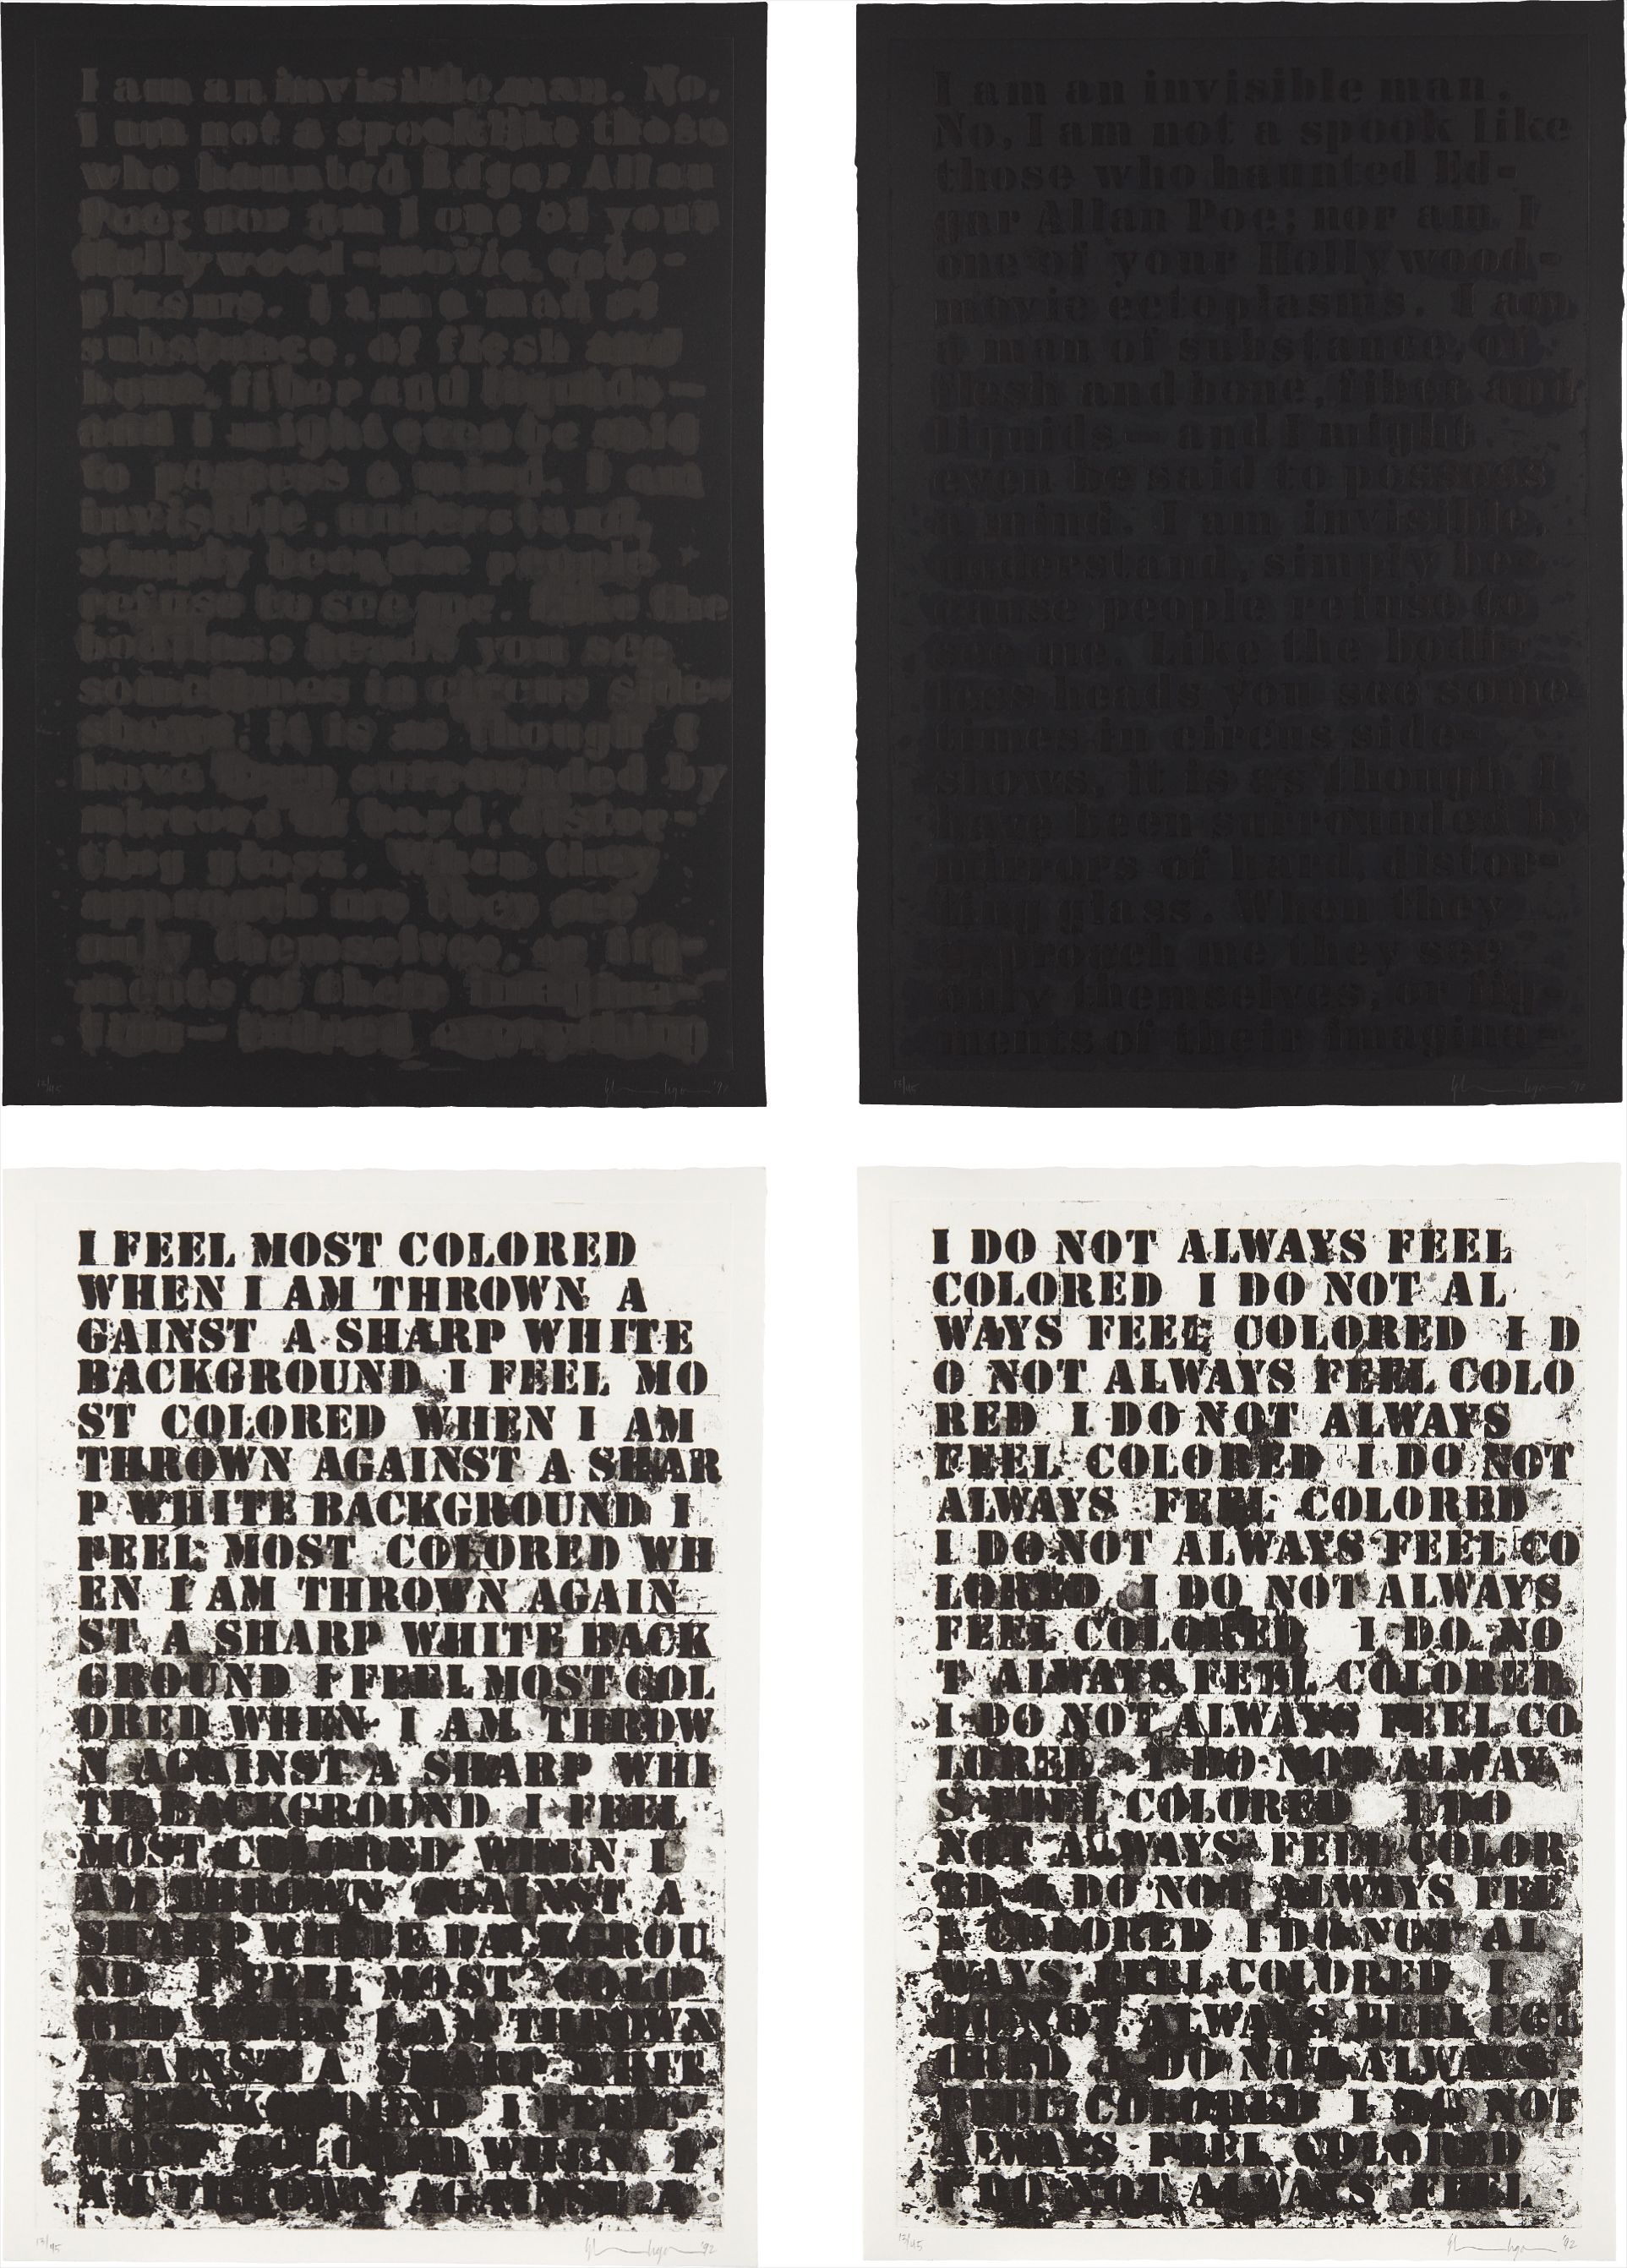 I am an invisible man. No,
I am not a spook like those
who haunted Edgar Allan
Poe; nor am I one of your
Hollywood-movie ecto-
plasms. I am a man of
substance, of flesh and
bone, fiber and liquids—
and I might even be said
to possess a mind. I am
invisible, understand,
simply because people
refuse to see me. Like the
bodiless heads you see
sometimes in circus side-
shows, it is as though I
have been surrounded by
mirrors of hard, distor-
ting glass. When they
approach me they see
only themselves, or fig-
ments of their imagina-
tion— everything
12/45
'92
I am an invisible man.
No, I am not a spook like
those who haunted Ed-
gar Allan Poe; nor am I
one of your Hollywood-
movie ectoplasms. I am
a man of substance, of
flesh and bone, fiber and
liquids—and I might
even be said to possess
a mind. I am invisible,
understand, simply bec-
cause people refuse to
see me. Like the bodi-
less heads you see some-
times in circus side-
shows, it is as though I
have been surrounded by
mirrors of hard, distor-
ting glass. When they
approach me they see
only themselves, or fig-
ments of their imagina-
12/45
'92
I FEEL MOST COLORED
WHEN I AM THROWN A
GAINST A SHARP WHITE
BACKGROUND I FEEL MO
ST COLORED WHEN I AM
THROWN AGAINST A SHAR
P WHITE BACKGROUND I
FEEL MOST COLORED WH
EN I AM THROWN AGAIN
ST A SHARP WHITE BACK
GROUND I FEEL MOST COL
ORED WHEN I AM THROW
N AGAINST A SHARP WHI
TE BACKGROUND I FEEL
MOST COLORED WHEN I
AM THROWN AGAINST A
SHARP WHITE BACKGROU
ND I FEEL MOST COLO
RED WHEN I AM THROWN
AGAINST A SHARP WHIT
E BACKGROUND I FEEL
MOST COLORED WHEN I
AM THROWN AGAINST A
12/45
'92
I DO NOT ALWAYS FEEL
COLORED I DO NOT AL
WAYS FEEL COLORED I D
O NOT ALWAYS FEEL COLO
RED I DO NOT ALWAYS
FEEL COLORED I DO NOT
ALWAYS FEEL COLORED
I DO NOT ALWAYS FEEL CO
LORED I DO NOT ALWAYS
FEEL COLORED I DO NO
T ALWAYS FEEL COLORED
I DO NOT ALWAYS FEEL CO
LORED I DO NOT ALWAY
S FEEL COLORED I DO
NOT ALWAYS FEEL COLOR
ED I DO NOT ALWAYS FEE
L COLORED I DO NOT AL
WAYS FEEL COLORED I
DO NOT ALWAYS FEEL COL
ORED I DO NOT ALWAYS
FEEL COLORED I DO NOT
ALWAYS FEEL COLORED
I DO NOT ALWAYS FEEL
12/45
'92